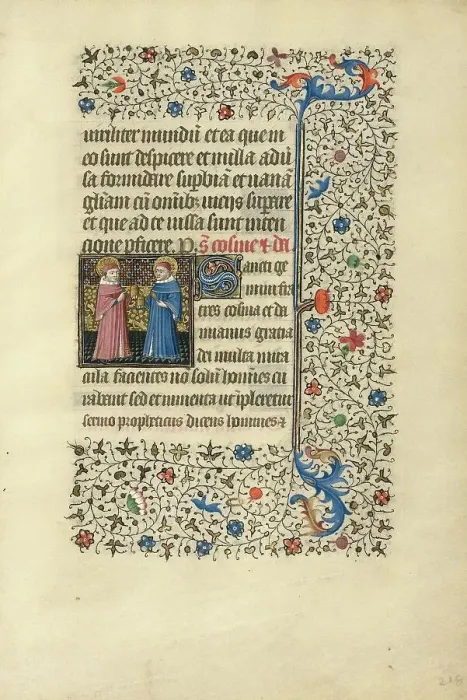 uiriliter mundū et ea que in
eo sunt despicere et nulla adū
sa formidare supbiā et uanā
gliam cū omībz uiciis supare
et que ad te iussa sunt inten
cione pficere. P. s̄ cosme & da
Sancti ge
mini fra
tres cosma et da
mianus gratia
dei multa mira
cula facientes nō solū hōmīes cu
rabant sed et iumenta ut īpleretur
sermo propheticus dicens homines &
218